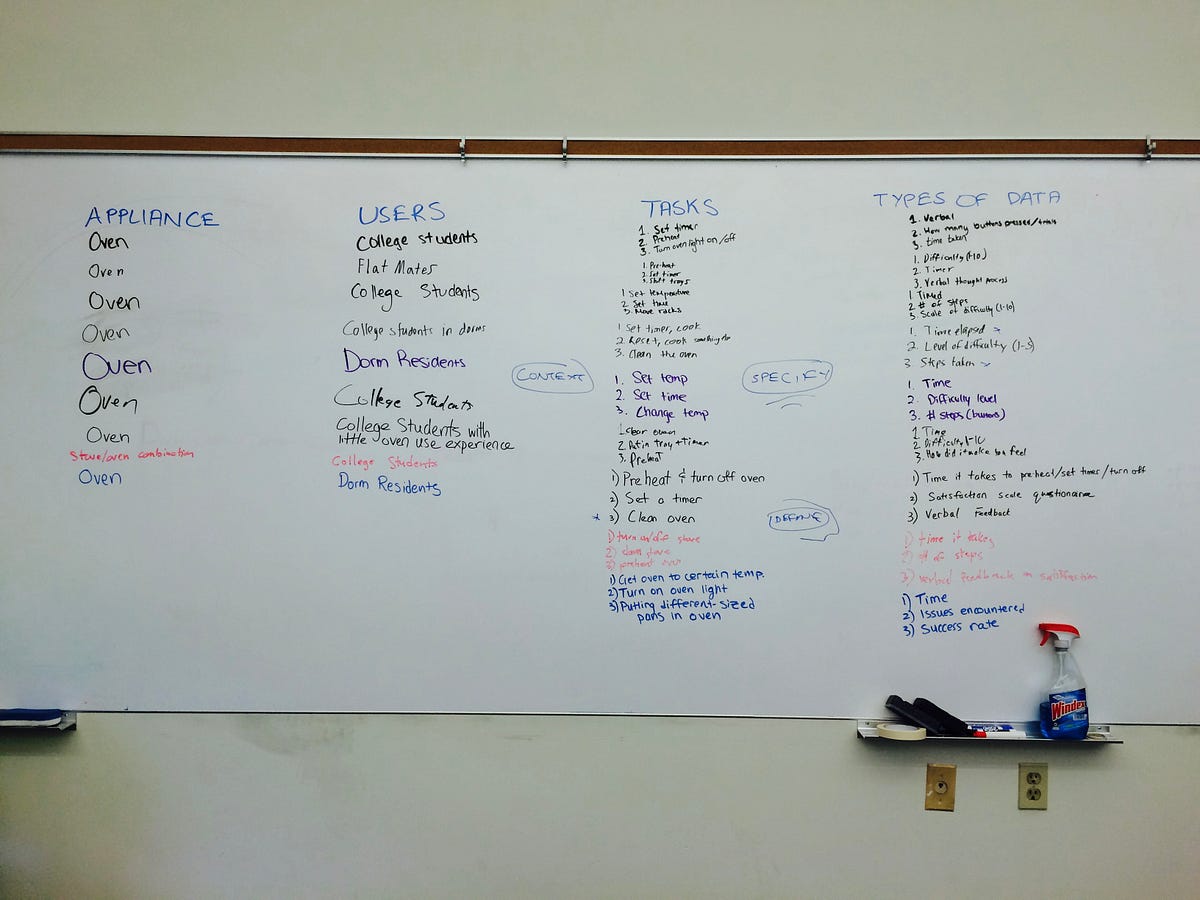 APPLIANCE
Oven
Oven
Oven
Oven
Oven
Oven
Oven
Stove/oven combination
Oven
USERS
College students
Flat Mates
College Students
College students in dorms
Dorm Residents
College Students
College Students with
little oven use experience
College Students
Dorm Residents
TASKS
1. Set timer
2. Preheat
3. Turn oven light on/off
1. Pre-heat
2. Set timer
3. Shift trays
1 Set temperature
2 Set time
3. Move racks
1 Set timer, cook
2. Reset, cook something else
3. Clean the oven
1. Set temp
2. Set time
3. Change temp
1. Clear oven
2. Put in tray + Timer
3. Preheat
1) Preheat & turn off oven
2) Set a timer
3) Clean oven
1) turn on/off stove
2) clean stove
3) preheat oven
1) Get oven to certain temp.
2) Turn on oven light
3) Putting different-sized
pans in oven
CONTEXT
SPECIFY
DEFINE
TYPES OF DATA
1. Verbal
2. How many buttons presses/trials
3. time taken
1. Difficulty (1-10)
2. Timer
3. Verbal thought process
1 Timed
2 # of steps
3 Scale of difficulty (1-10)
1. Time elapsed
2. Level of difficulty (1-5)
3 Steps taken
1. Time
2. Difficulty level
3. # Steps (buttons)
1. Time
2. Difficulty 1-10
3. How did it make you feel
1) Time it takes to preheat/set timer/turn off
2) Satisfaction scale questionaire
3) Verbal Feedback
1) time it takes
2) # of steps
3) verbal feedback on satisfaction
1) Time
2) Issues encountered
3) Success rate
Windex